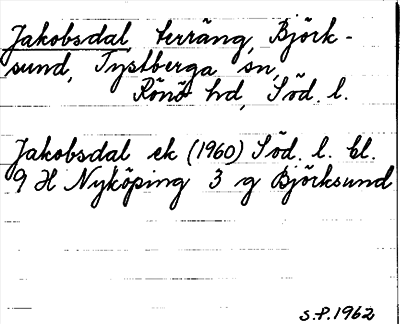 Jakobsdal, terräng, Björk-
sund, Tystberga sn,
Rönö hd, Söd. l.
Jakobsdal ek (1960) Söd. l. bl.
9 H Nyköping 3 g Björksund
S.P. 1962